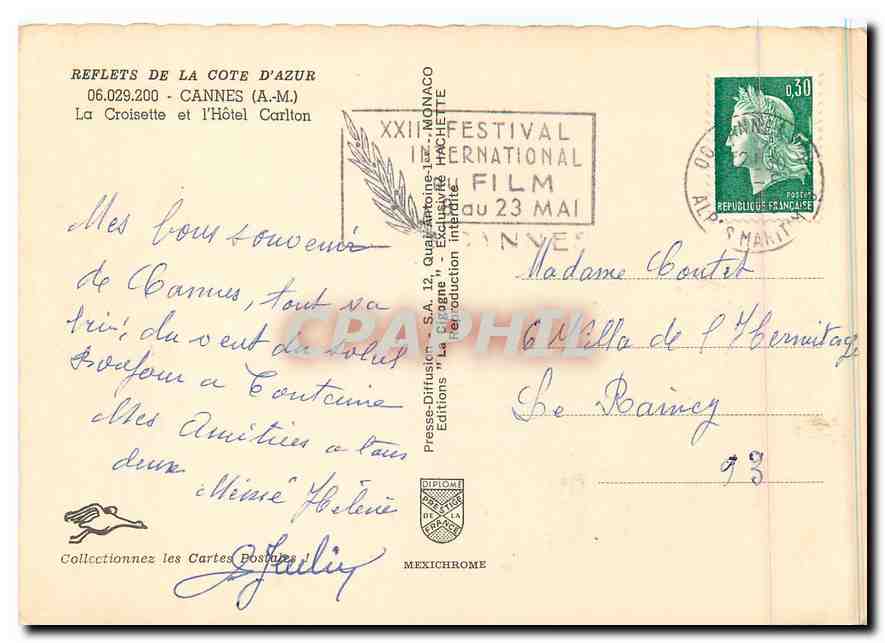 REFLETS DE LA COTE D'AZUR
06.029.200 - CANNES (A.-M.)
La Croisette et l'Hôtel Carlton
XXII FESTIVAL
INTERNATIONAL
FILM
au 23 MAI
CANNES
0,30
POSTES
REPUBLIQUE FRANÇAISE
CANNES
ALPES MARITIMES
Mes bons souvenirs
de Cannes, tout va
bien, du vent du soleil
Bonjour a
Mes Amitiées a tous
deux
Hélène
Presse-Diffusion - S.A. 12, Quai Antoine-1er - MONACO
Editions "La Cigogne" - Exclusivité HACHETTE
Reproduction interdite
Madame
6 Villa de l'Hermitage
Le Raincy
93
CPAPHIL
Collectionnez les Cartes Postales !
DIPLOME
PRESTIGE
DE LA
FRANCE
MEXICHROME